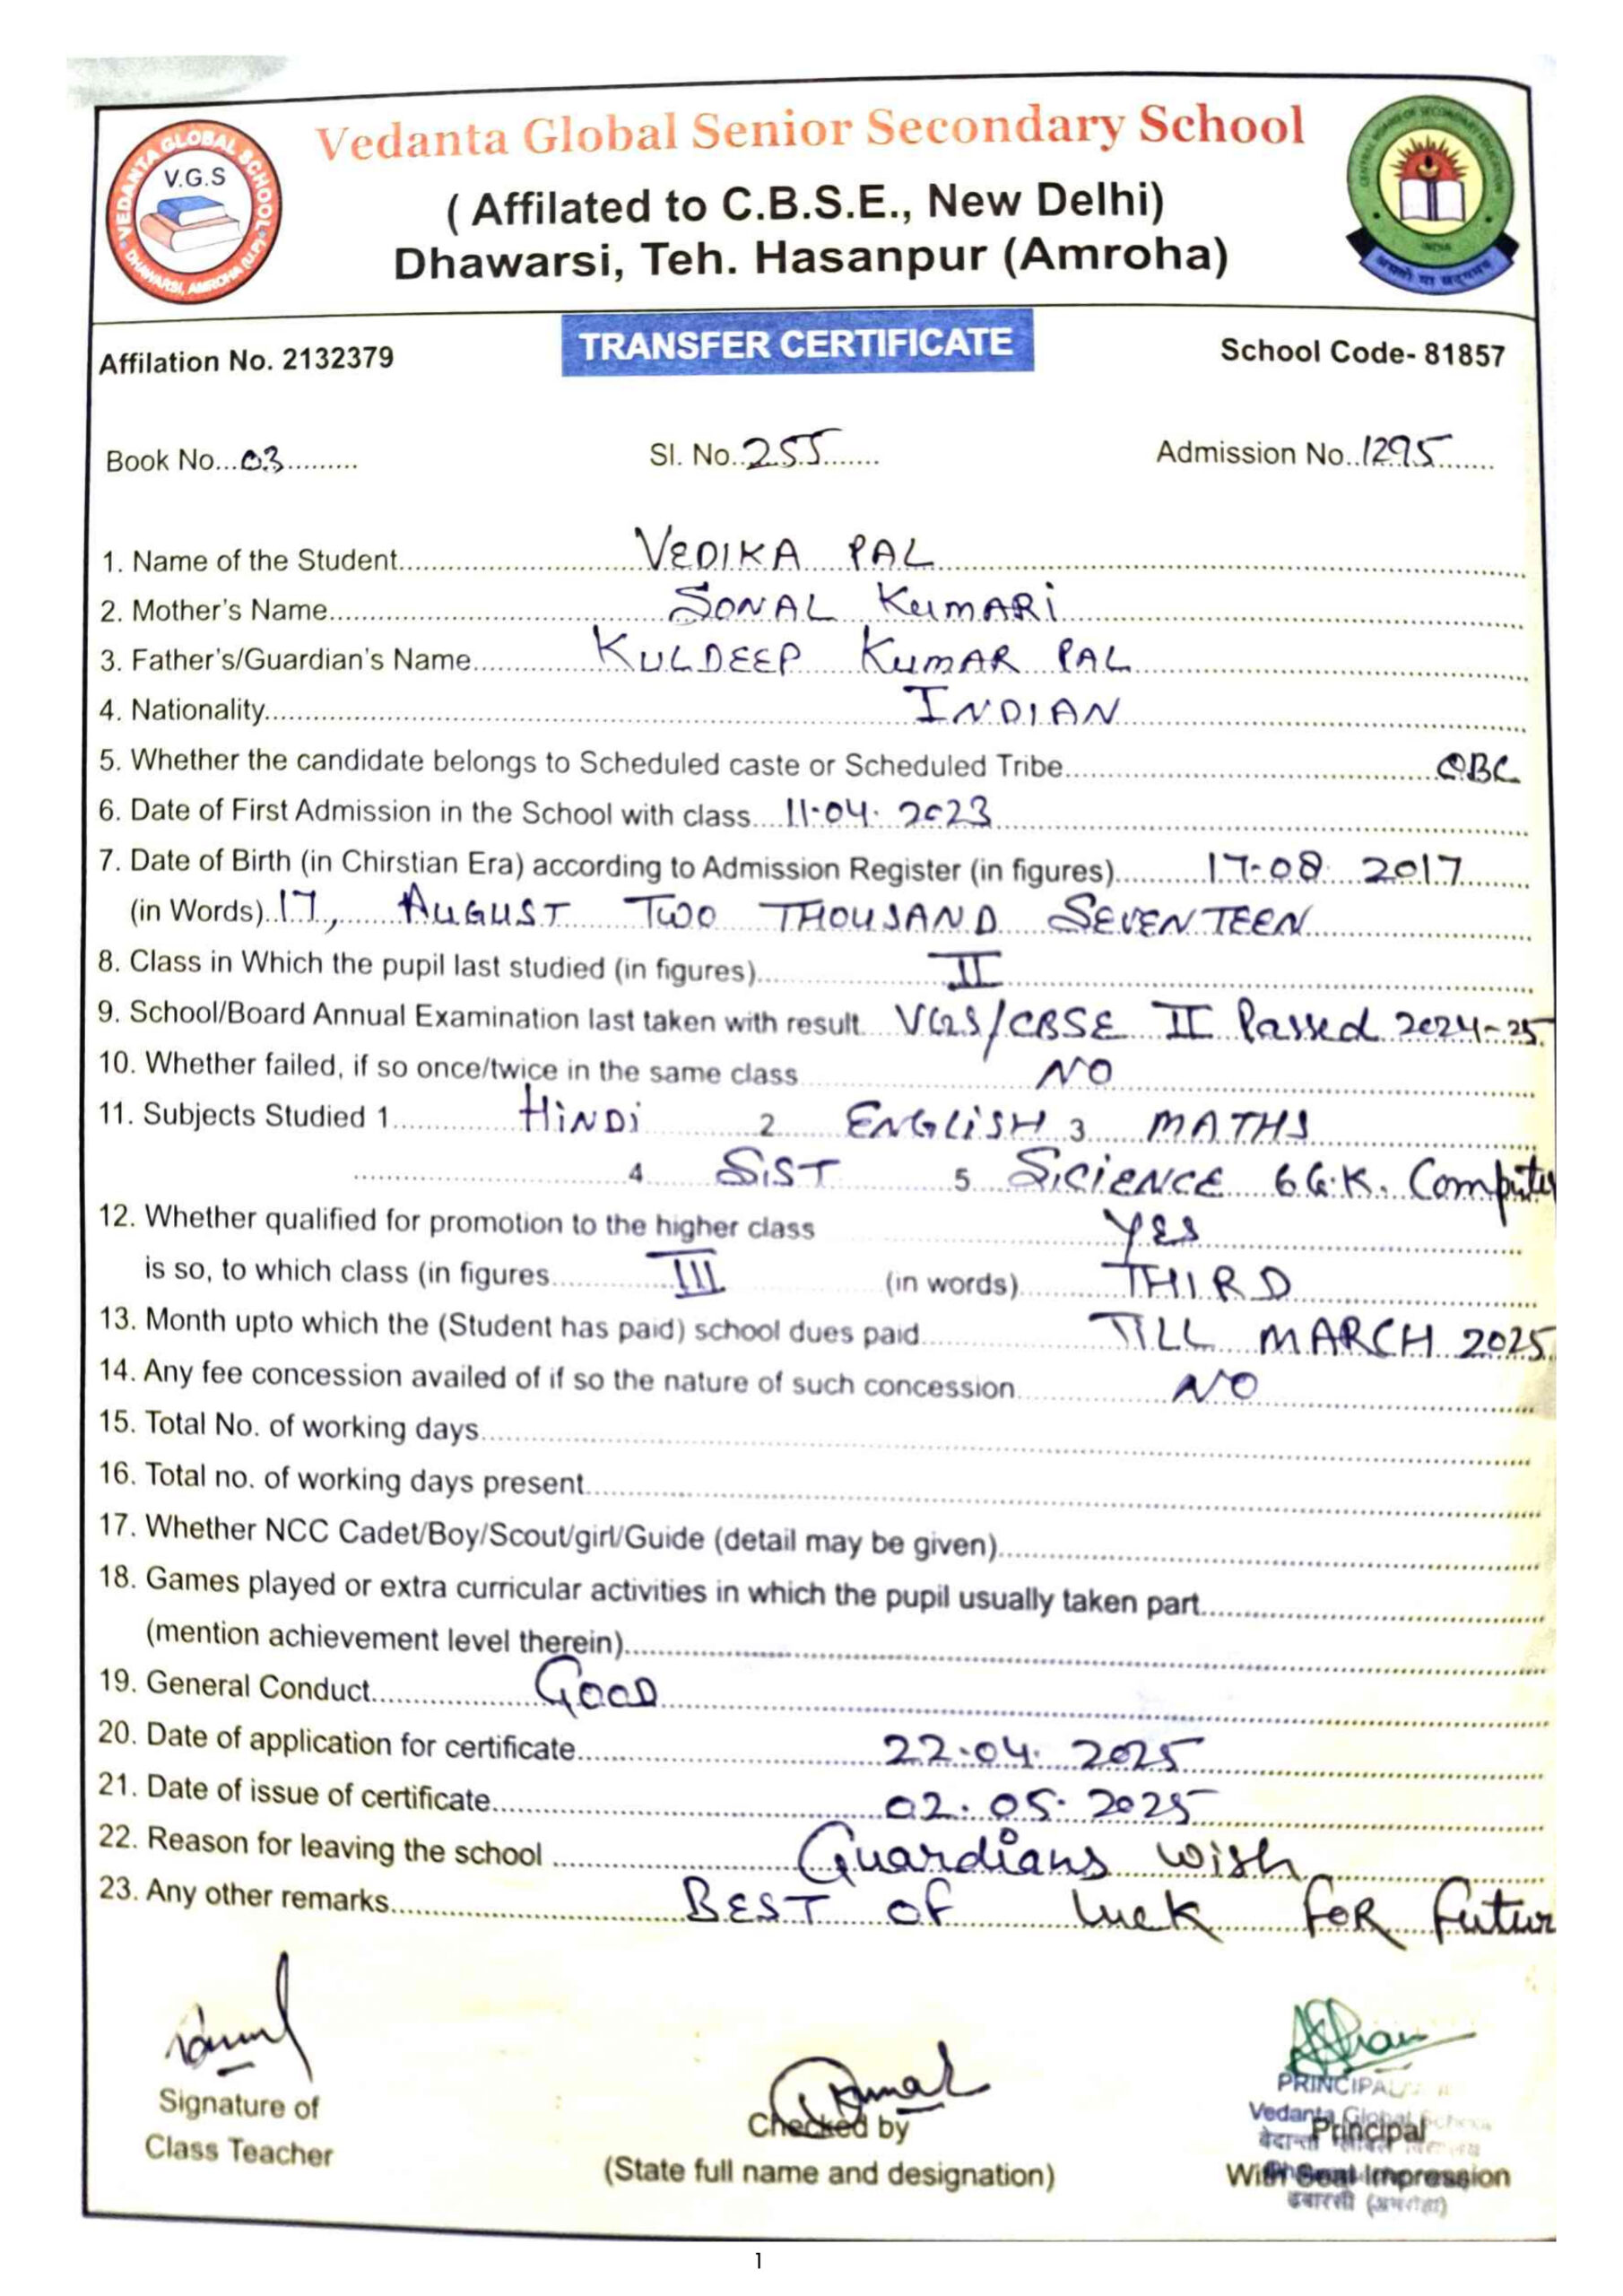 Vedanta Global Senior Secondary School
VEDANTA GLOBAL SCHOOL
V.G.S
DHAWARSI, AMROHA (U.P.)
( Affilated to C.B.S.E., New Delhi)
Dhawarsi, Teh. Hasanpur (Amroha)
CENTRAL BOARD OF SECONDARY EDUCATION
INDIA
असतो मा सद्गमय
Affilation No. 2132379 TRANSFER CERTIFICATE School Code- 81857
Book No...03......... Sl. No..255....... Admission No..1295.......
1. Name of the Student VEDIKA PAL
2. Mother's Name SONAL KUMARi
3. Father's/Guardian's Name KULDEEP KUMAR PAL
4. Nationality INDIAN
5. Whether the candidate belongs to Scheduled caste or Scheduled Tribe OBC
6. Date of First Admission in the School with class 11-04. 2023
7. Date of Birth (in Chirstian Era) according to Admission Register (in figures) 17-08 2017
(in Words) 17, AUGUST TWO THOUSAND SEVENTEEN
8. Class in Which the pupil last studied (in figures) II
9. School/Board Annual Examination last taken with result VGS/CBSE II Passed 2024-25
10. Whether failed, if so once/twice in the same class NO
11. Subjects Studied 1 HiNDi 2 ENGLiSH 3 MATHS
4 S.ST 5 SCiENCE 6 G.K. Computer
12. Whether qualified for promotion to the higher class YES
is so, to which class (in figures III (in words) THIRD
13. Month upto which the (Student has paid) school dues paid TILL MARCH 2025
14. Any fee concession availed of if so the nature of such concession NO
15. Total No. of working days
16. Total no. of working days present
17. Whether NCC Cadet/Boy/Scout/girl/Guide (detail may be given)
18. Games played or extra curricular activities in which the pupil usually taken part
(mention achievement level therein)
19. General Conduct GOOD
20. Date of application for certificate 22-04. 2025
21. Date of issue of certificate 02. 05. 2025
22. Reason for leaving the school Guardians wish
23. Any other remarks BEST OF luck FOR Futur
PRINCIPAL
Vedanta Global School
Signature of
Class Teacher
Checked by
(State full name and designation)
Principal
With Seal Impression
ढवारसी (अमरोहा)
1